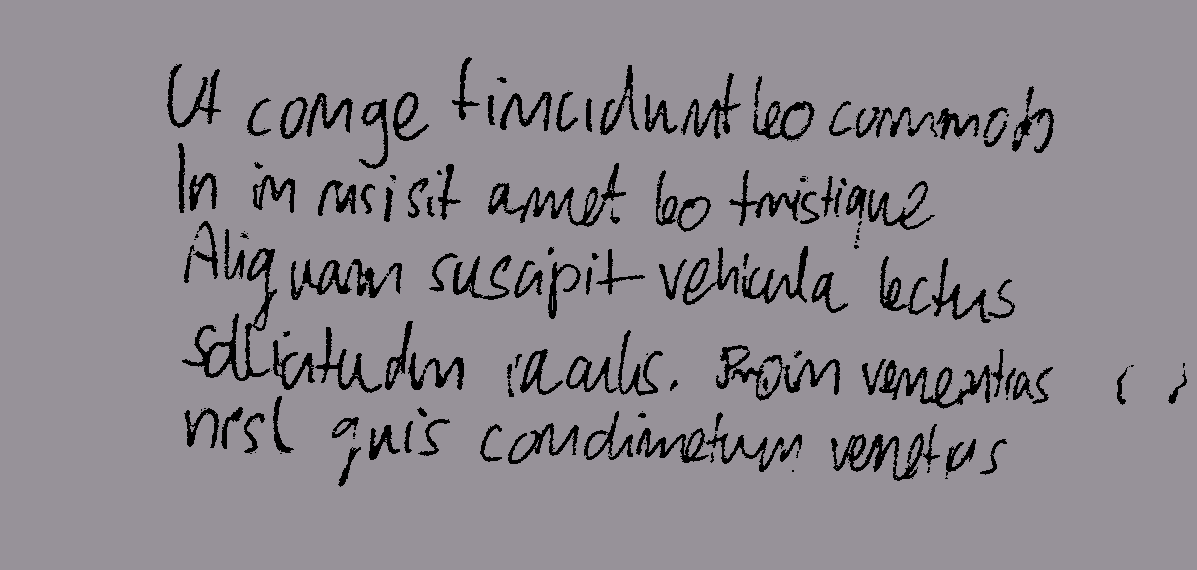 Ut conge tincidunt leo commodo
In in nisi sit amet leo tristique
Aliquam suscipit vehicula lectus
sollicitudin iaculis. Proin
nisl quis condimetum